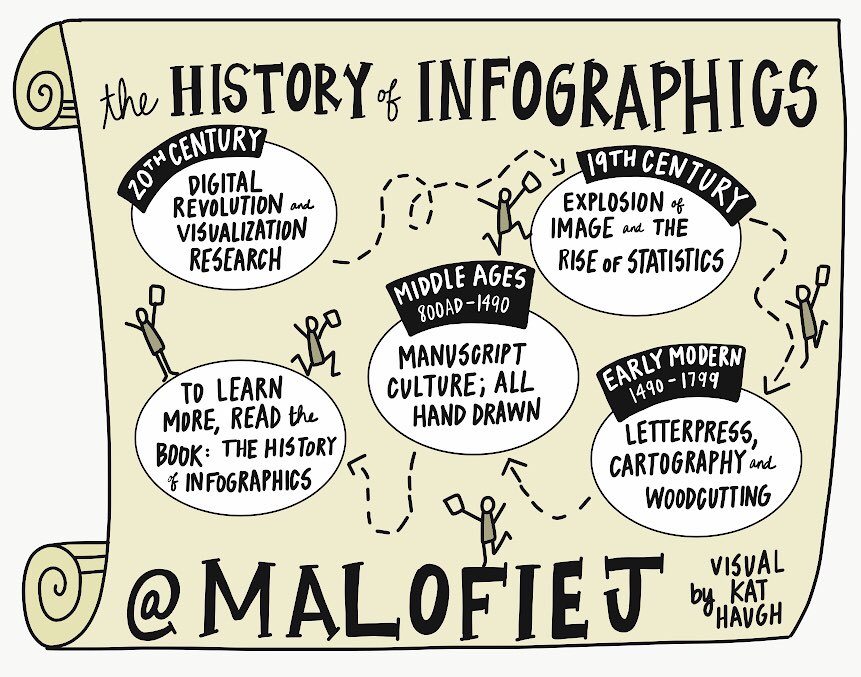 the HISTORY of INFOGRAPHICS
20TH CENTURY
DIGITAL
REVOLUTION and
VISUALIZATION
RESEARCH
19TH CENTURY
EXPLOSION of
IMAGE and THE
RISE of STATISTICS
MIDDLE AGES
800AD-1490
MANUSCRIPT
CULTURE; ALL
HAND DRAWN
EARLY MODERN
1490-1799
LETTERPRESS,
CARTOGRAPHY and
WOODCUTTING
TO LEARN
MORE, READ the
BOOK: THE HISTORY
of INFOGRAPHICS
@MALOFIEJ
VISUAL
by KAT
HAUGH